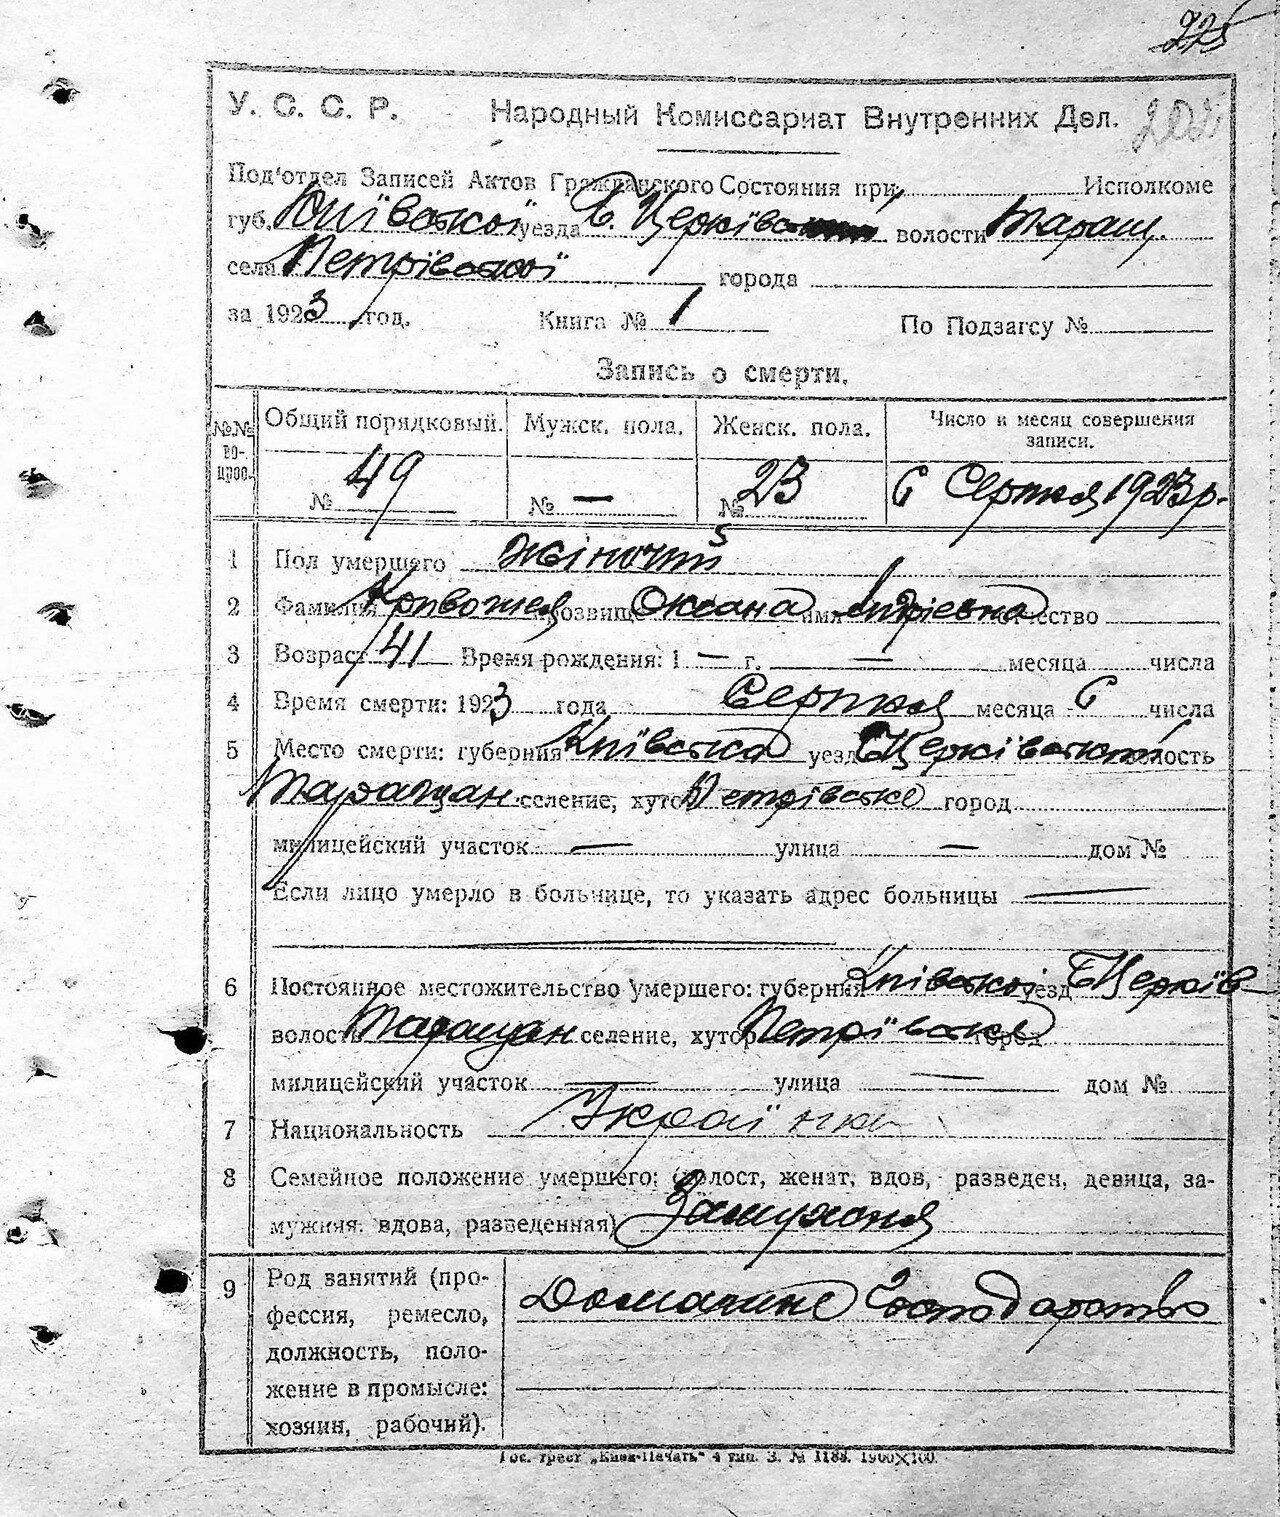 225
У. С. С. Р. Народный Комиссариат Внутренних Дел. 202
Под'отдел Записей Актов Гражданского Состояния при Исполкоме
губ. Київської уезда Б. Церківсь волости Таращ.
села Петрівської города
за 1923 год. Книга № 1 По Подзагсу №
Запись о смерти.
№№ во-прос. Общий порядковый. Мужск. пола. Женск. пола. Число и месяц совершения записи.
№ 49 № — № 23 6 Серпня 1923 р.
1 Пол умершего жіночий
2 Фамилия Кривошея прозвище Оксана имя Андрієвна отчество
3 Возраст 41 Время рождения: 1 — г. — месяца числа
4 Время смерти: 1923 года Серпня месяца 6 числа
5 Место смерти: губерния Київська уезд БЦерківський волость
Таращан. селение, хутор Петрівське город
милицейский участок — улица — дом №
Если лицо умерло в больнице, то указать адрес больницы —
6 Постоянное местожительство умершего: губерния Київської уезд БЦерків-
волость Таращан селение, хутор Петрівське город
милицейский участок — улица — дом №
7 Национальность Українка
8 Семейное положение умершего: (холост, женат, вдов, разведен, девица, за-
мужняя, вдова, разведенная) Замужня
9 Род занятий (про-
фессия, ремесло,
должность, поло-
жение в промысле:
хозяин, рабочий).
Домашнє Господарство
Гос. трест „Киев-Печать" 4 тип. З. № 1188. 1900×100.